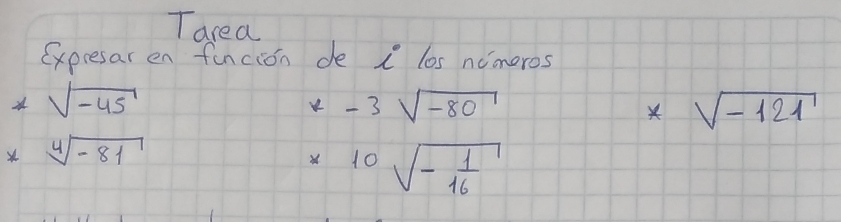 Tarea
Expresar en función de i los números
* √-45 * -3 √-80 * √-121
* ∜-81 * 10 √-1/16